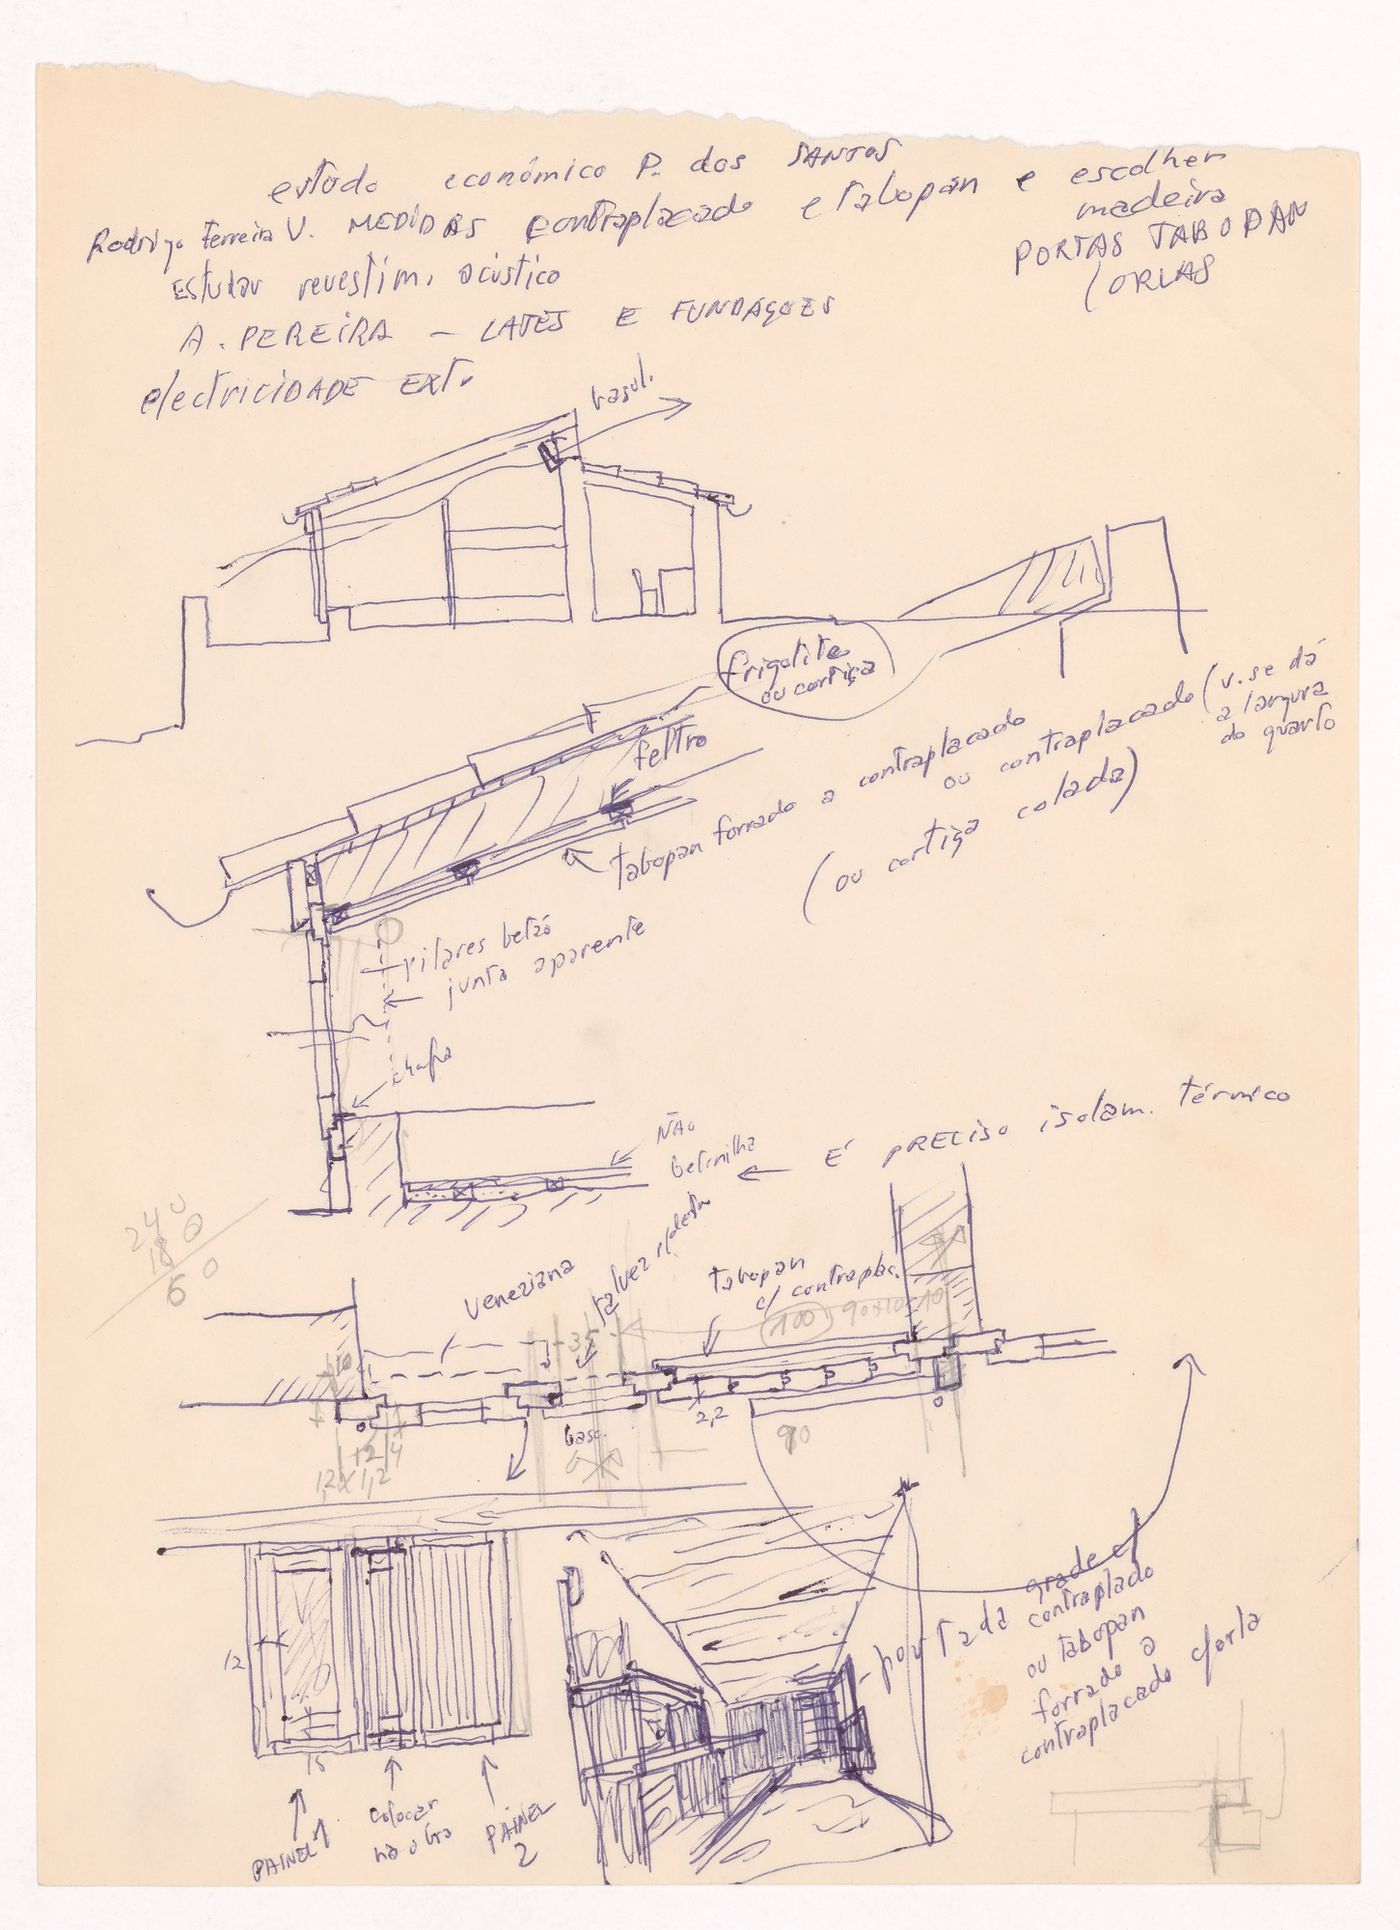 estudo económico P. dos SANTOS
Rodrigo Ferreira V. MEDIDAS contraplacado e tabopan e escolher
madeira
PORTAS TABOPAN
(ORLAS
Estudar revestim. acústico
A. PEREIRA – LAJES E FUNDAÇOES
electricidade EXT.
bascul.
frigolite
ou cortiça
feltro
tabopan forrado a contraplacado
ou contraplacado (v. se dá
a largura
do quarto
(ou cortiça colada)
pilares betão
junta aparente
chapa
NÃO
betonilha
É PRECISO isolam. térmico
240
180
60
veneziana
talvez
tabopan
c/ contraplac.
100
90x10
35
10
2,2
basc.
90
12 4
1,2x1,2
portada grade c/
contraplado
ou tabopan
forrado a
contraplacado c/orla
12
15
PAINEL 1
colocar
na obra
PAINEL
2